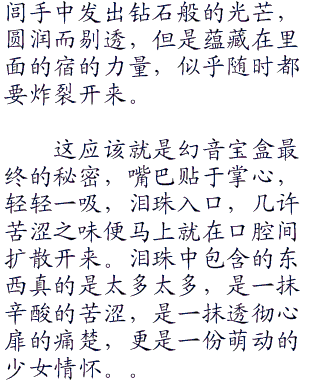 闾手中发出钻石般的光芒，
圆润而剔透，但是蕴藏在里
面的宿的力量，似乎随时都
要炸裂开来。
这应该就是幻音宝盒最
终的秘密，嘴巴贴于掌心，
轻轻一吸，泪珠入口，几许
苦涩之味便马上就在口腔间
扩散开来。泪珠中包含的东
西真的是太多太多，是一抹
辛酸的苦涩，是一抹透彻心
扉的痛楚，更是一份萌动的
少女情怀。。